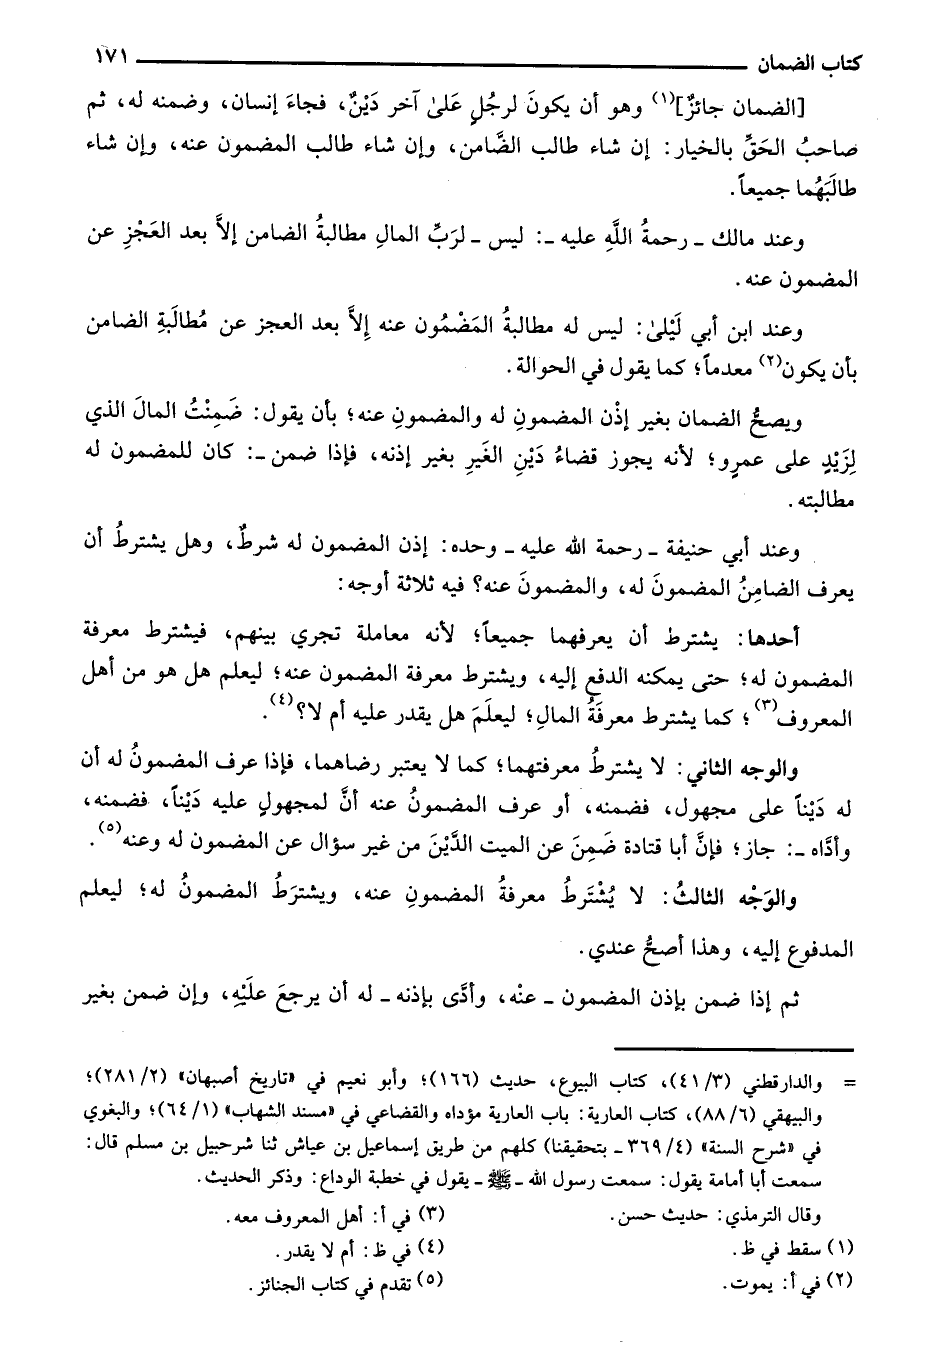 كتاب الضمان ١٧١
[الضمان جائزٌ](١) وهو أن يكونَ لرجُلٍ عَلىٰ آخر دَيْنٌ، فجاءَ إنسان، وضمنه له، ثم
صاحبُ الحَقِّ بالخيار: إن شاء طالب الضَّامن، وإن شاء طالب المضمون عنه، وإن شاء
طالَبَهُما جميعاً.
وعند مالك ـ رحمةُ اللَّهِ عليه ـ: ليس ـ لرَبِّ المالِ مطالبةُ الضامن إلاَّ بعد العَجْزِ عن
المضمون عنه.
وعند ابن أبي لَيْلىٰ: ليس له مطالبةُ المَضْمُون عنه إِلاَّ بعد العجز عن مُطالَبَةِ الضامن
بأن يكون(٢) معدماً؛ كما يقول في الحوالة.
ويصحُّ الضمان بغير إذْن المضمونِ له والمضمونِ عنه؛ بأن يقول: ضَمِنْتُ المالَ الذي
لِزَيْدٍ على عمرٍو؛ لأنه يجوز قضاءُ دَيْنِ الغَيرِ بغير إذنه، فإذا ضمن ـ: كان للمضمون له
مطالبته.
وعند أبي حنيفة ـ رحمة الله عليه ـ وحده: إذن المضمون له شرطٌ، وهل يشترطُ أن
يعرف الضامِنُ المضمونَ له، والمضمونَ عنه؟ فيه ثلاثة أوجه:
أحدها: يشترط أن يعرفهما جميعاً؛ لأنه معاملة تجري بينهم، فيشترط معرفة
المضمون له؛ حتى يمكنه الدفع إليه، ويشترط معرفة المضمون عنه؛ ليعلم هل هو من أهل
المعروف(٣)؛ كما يشترط معرفَةُ المالِ؛ ليعلَمَ هل يقدر عليه أم لا؟(٤).
والوجه الثاني: لا يشترطُ معرفتهما؛ كما لا يعتبر رضاهما، فإذا عرف المضمونُ له أن
له دَيْناً على مجهول، فضمنه، أو عرف المضمونُ عنه أنَّ لمجهولٍ عليه دَيْناً، فضمنه،
وأدَّاه ـ: جاز؛ فإنَّ أبا قتادة ضَمِنَ عن الميت الدَّيْنَ من غير سؤال عن المضمون له وعنه(٥).
والوَجْه الثالثُ: لا يُشْتَرطُ معرفةُ المضمونِ عنه، ويشترَطُ المضمونُ له؛ ليعلم
المدفوع إليه، وهذا أصحُّ عندي.
ثم إذا ضمن بإذن المضمون ـ عنْه، وأدَّى بإذنه ـ له أن يرجعَ علَيْهِ، وإن ضمن بغير
= والدارقطني (٤١/٣)، كتاب البيوع، حديث (١٦٦)؛ وأبو نعيم في «تاريخ أصبهان» (٢٨١/٢)؛
والبيهقي (٨٨/٦)، كتاب العارية: باب العارية مؤداه والقضاعي في «مسند الشهاب» (٦٤/١)؛ والبغوي
في «شرح السنة» (٣٦٩/٤ ـ بتحقيقنا) كلهم من طريق إسماعيل بن عياش ثنا شرحبيل بن مسلم قال:
سمعت أبا أمامة يقول: سمعت رسول الله ـ ﷺ ـ يقول في خطبة الوداع: وذكر الحديث.
وقال الترمذي: حديث حسن.
(١) سقط في ظ.
(٢) في أ: يموت.
(٣) في أ: أهل المعروف معه.
(٤) في ظ: أم لا يقدر.
(٥) تقدم في كتاب الجنائز.